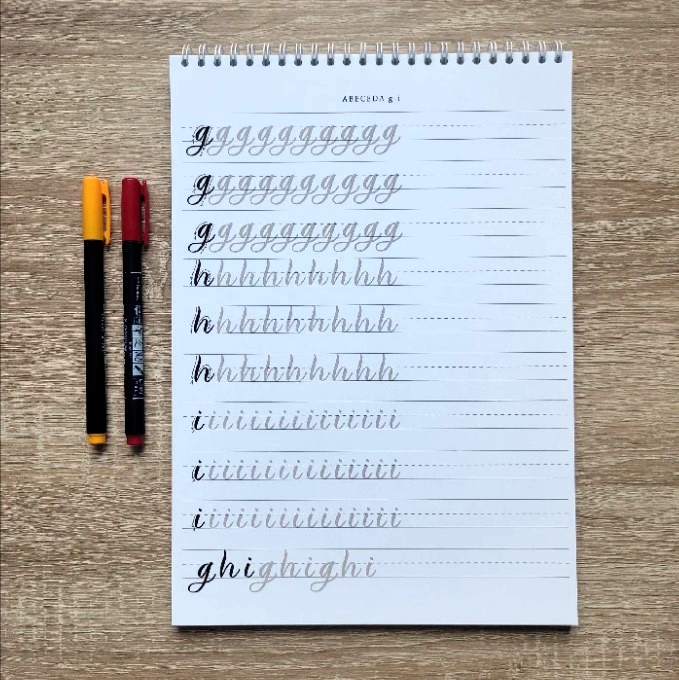 ABECEDA g-i
gggggggggg
gggggggggg
gggggggggg
hhhhhhhhh
hhhhhhhhh
hhhhhhhhh
iiiiiiiiiiiiiii
iiiiiiiiiiiiiii
iiiiiiiiiiiiiii
ghighighi